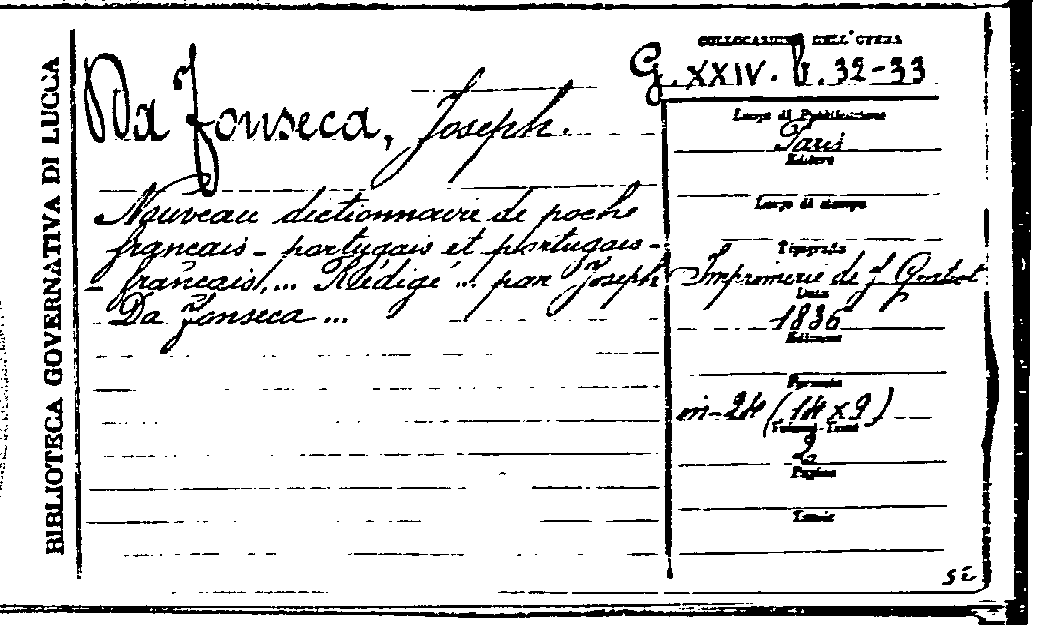 BIBLIOTECA GOVERNATIVA DI LUCCA
Da Fonseca, Joseph.
Nouveau dictionnaire de poche
français - portugais et portugais-
- français, ... Rédigé ... par Joseph
Da Fonseca ...
COLLOCAZIONE DELL'OPERA
G. XXIV. 32-33
Luogo di Pubblicazione
Paris
Editore
Luogo di stampa
Tipografo
Imprimerie de J
Data
1836
Edizione
Formato
in-24 (14 x 9)
Volumi-Tomi
2
Pagine
Tavole